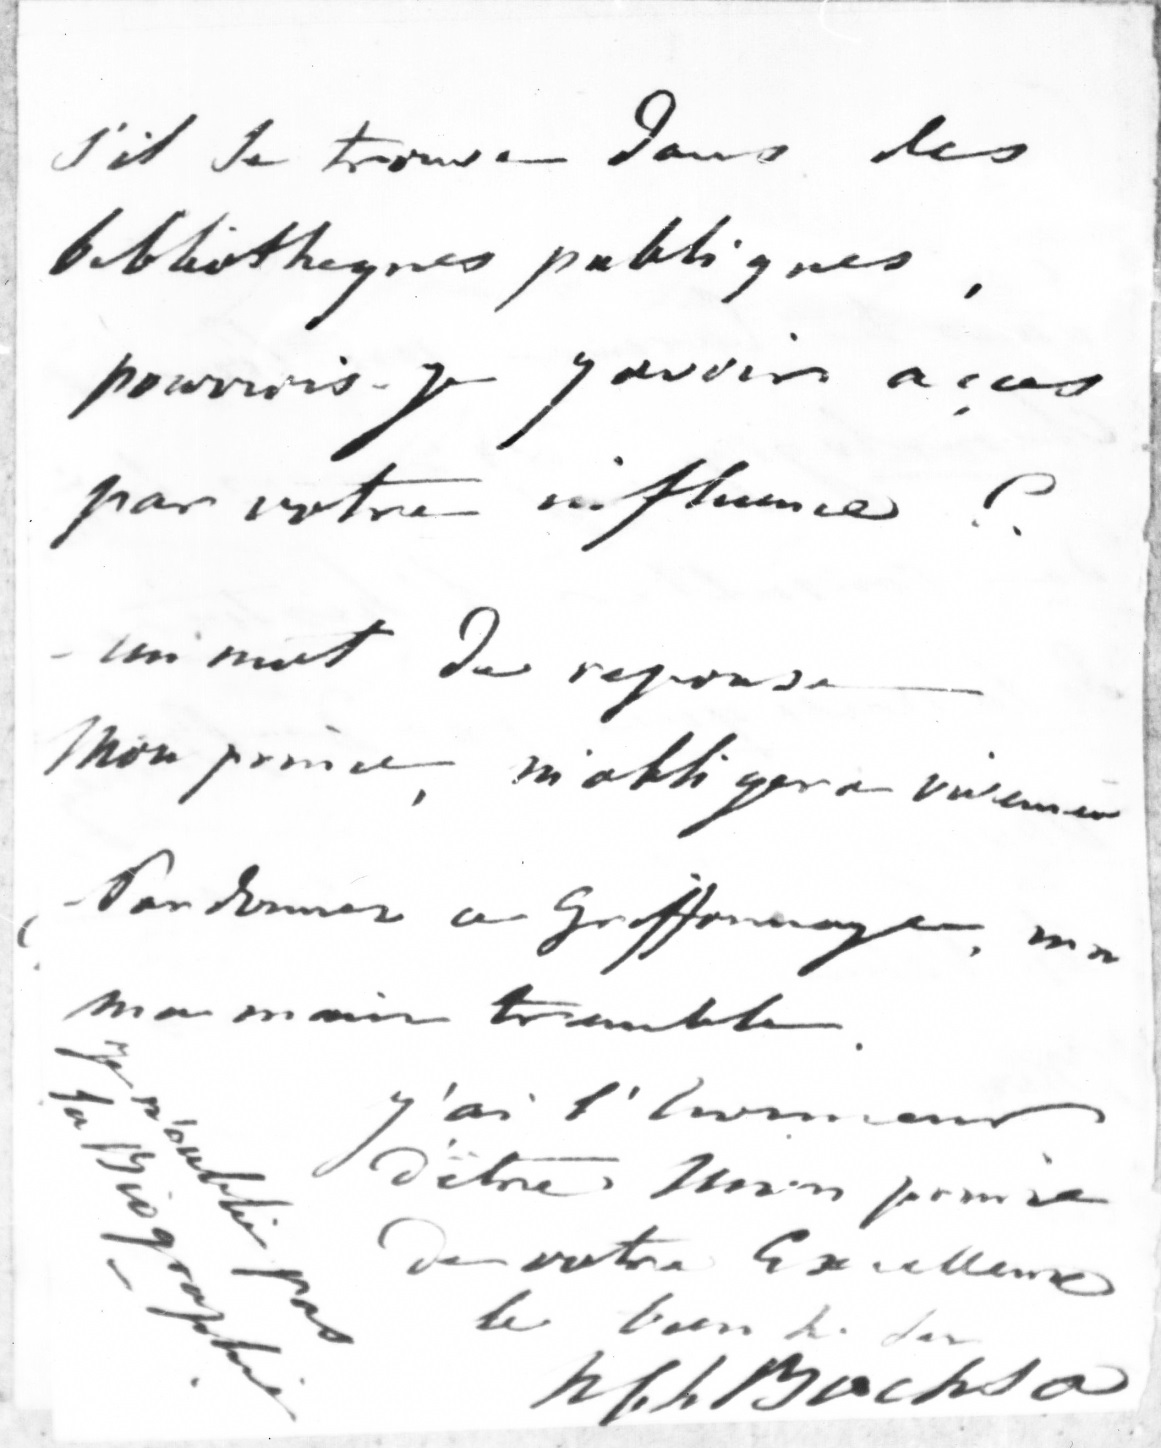 s'il se trouve dans des
bibliotheques publiques,
pourrois-je y avoir acçes
par votre influence ?.
- un mot de reponse
Mon prince, m'obligera vivement
- Pardonnez ce Griffonnage, ma
ma main tremble.
j'ai l'honneur
d'être Mon prince
de votre Excellence
le
Bochsa
je n'oublie pas
la Biographie